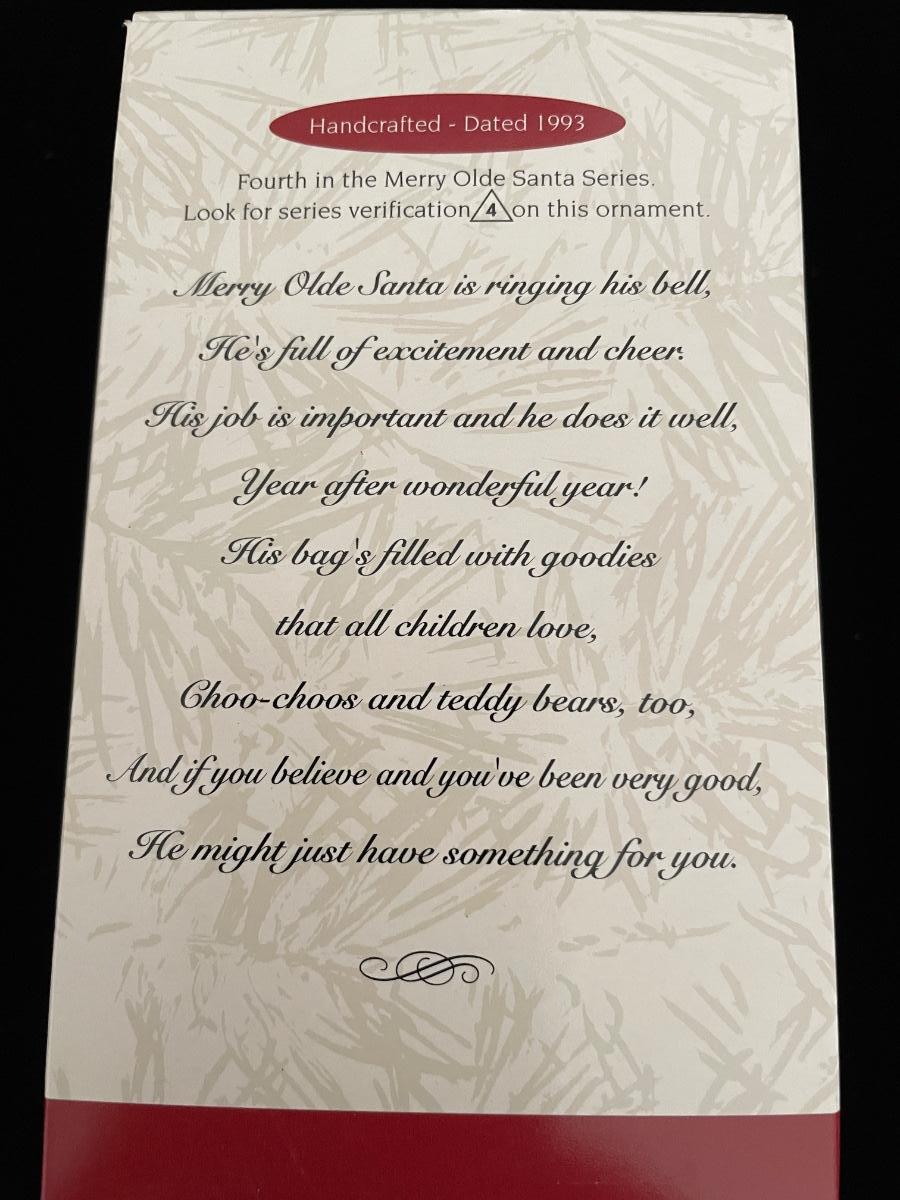 Handcrafted - Dated 1993
Fourth in the Merry Olde Santa Series.
Look for series verification 4 on this ornament.
Merry Olde Santa is ringing his bell,
He's full of excitement and cheer.
His job is important and he does it well,
Year after wonderful year!
His bag's filled with goodies
that all children love,
Choo-choos and teddy bears, too,
And if you believe and you've been very good,
He might just have something for you.